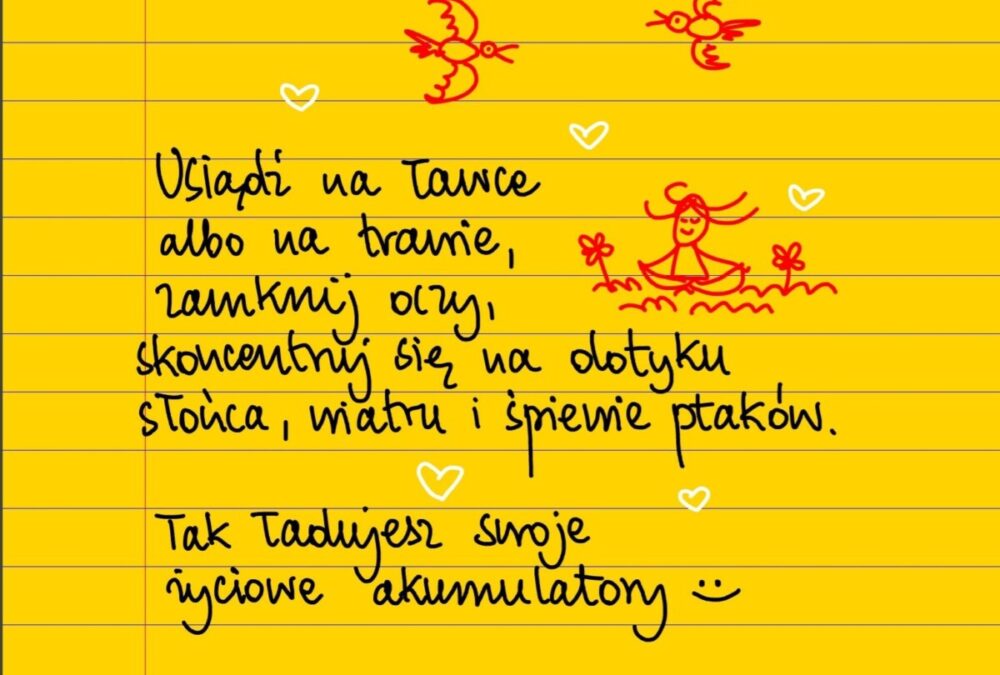 Usiądź na ławce
albo na trawie,
zamknij oczy,
skoncentruj się na dotyku
słońca, wiatru i śpiewie ptaków.
Tak ładujesz swoje
życiowe akumulatory :)